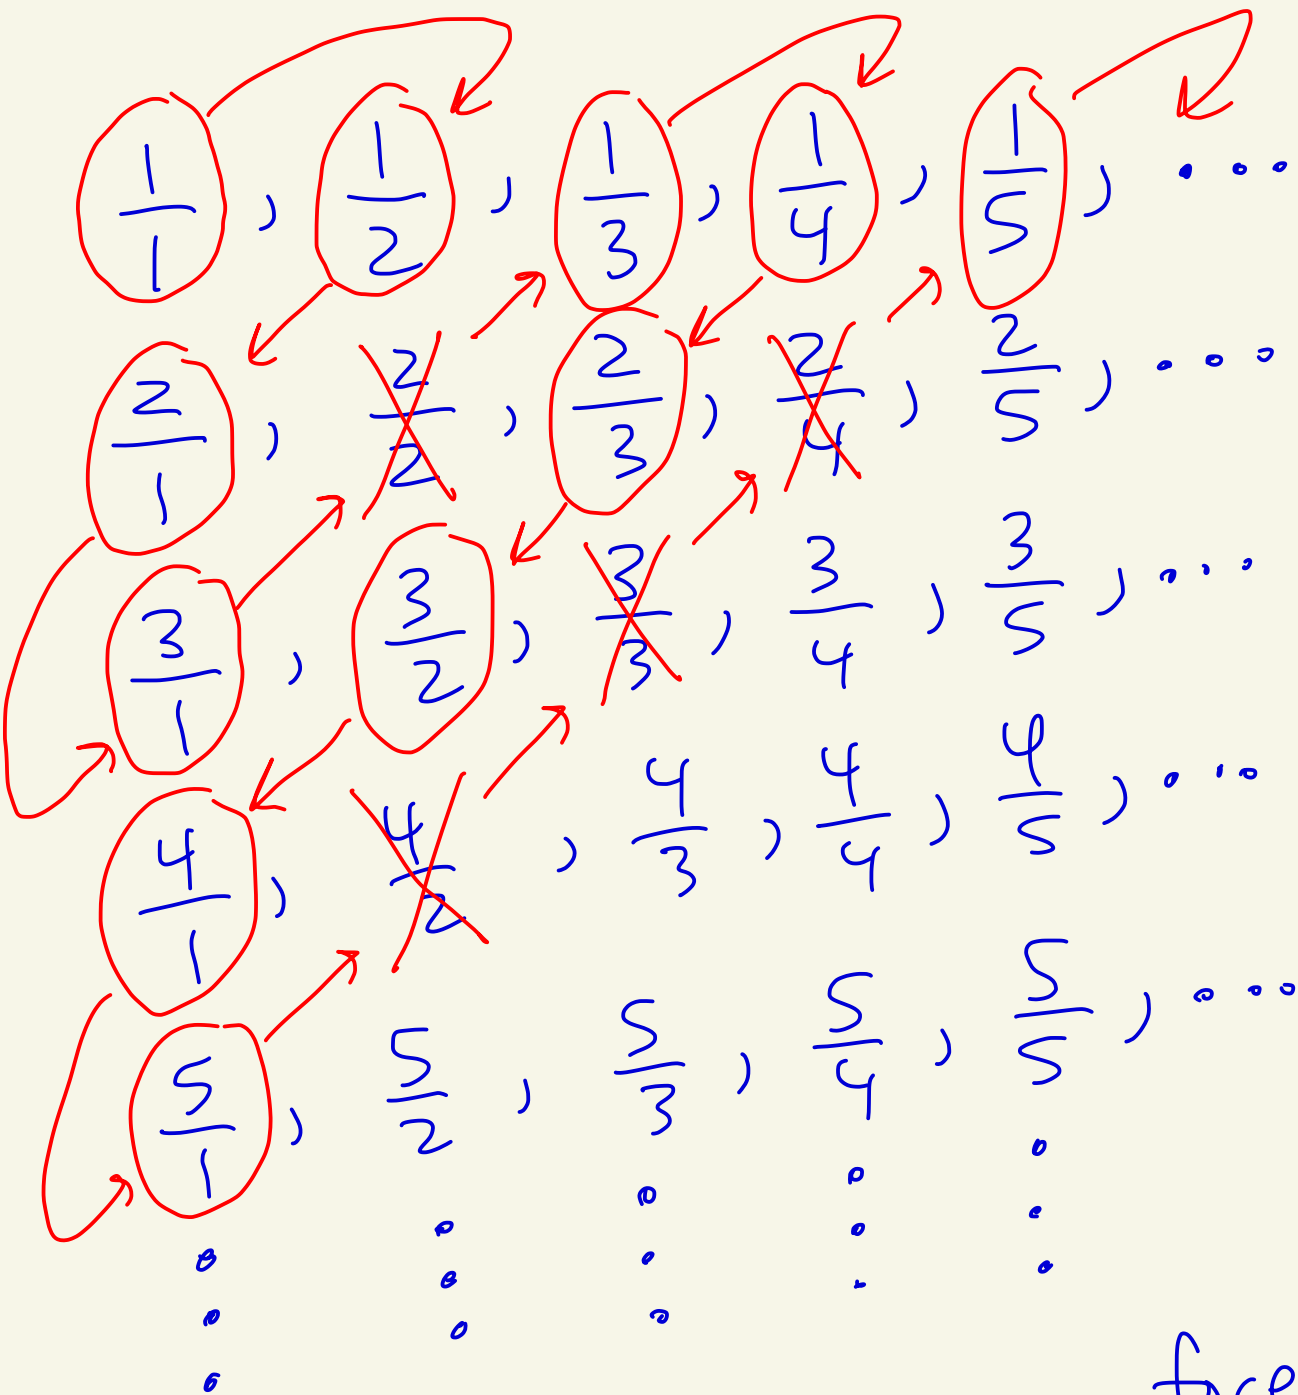 1/1, 1/2, 1/3, 1/4, 1/5, ...
2/1, 2/2, 2/3, 2/4, 2/5, ...
3/1, 3/2, 3/3, 3/4, 3/5, ...
4/1, 4/2, 4/3, 4/4, 4/5, ...
5/1, 5/2, 5/3, 5/4, 5/5, ...